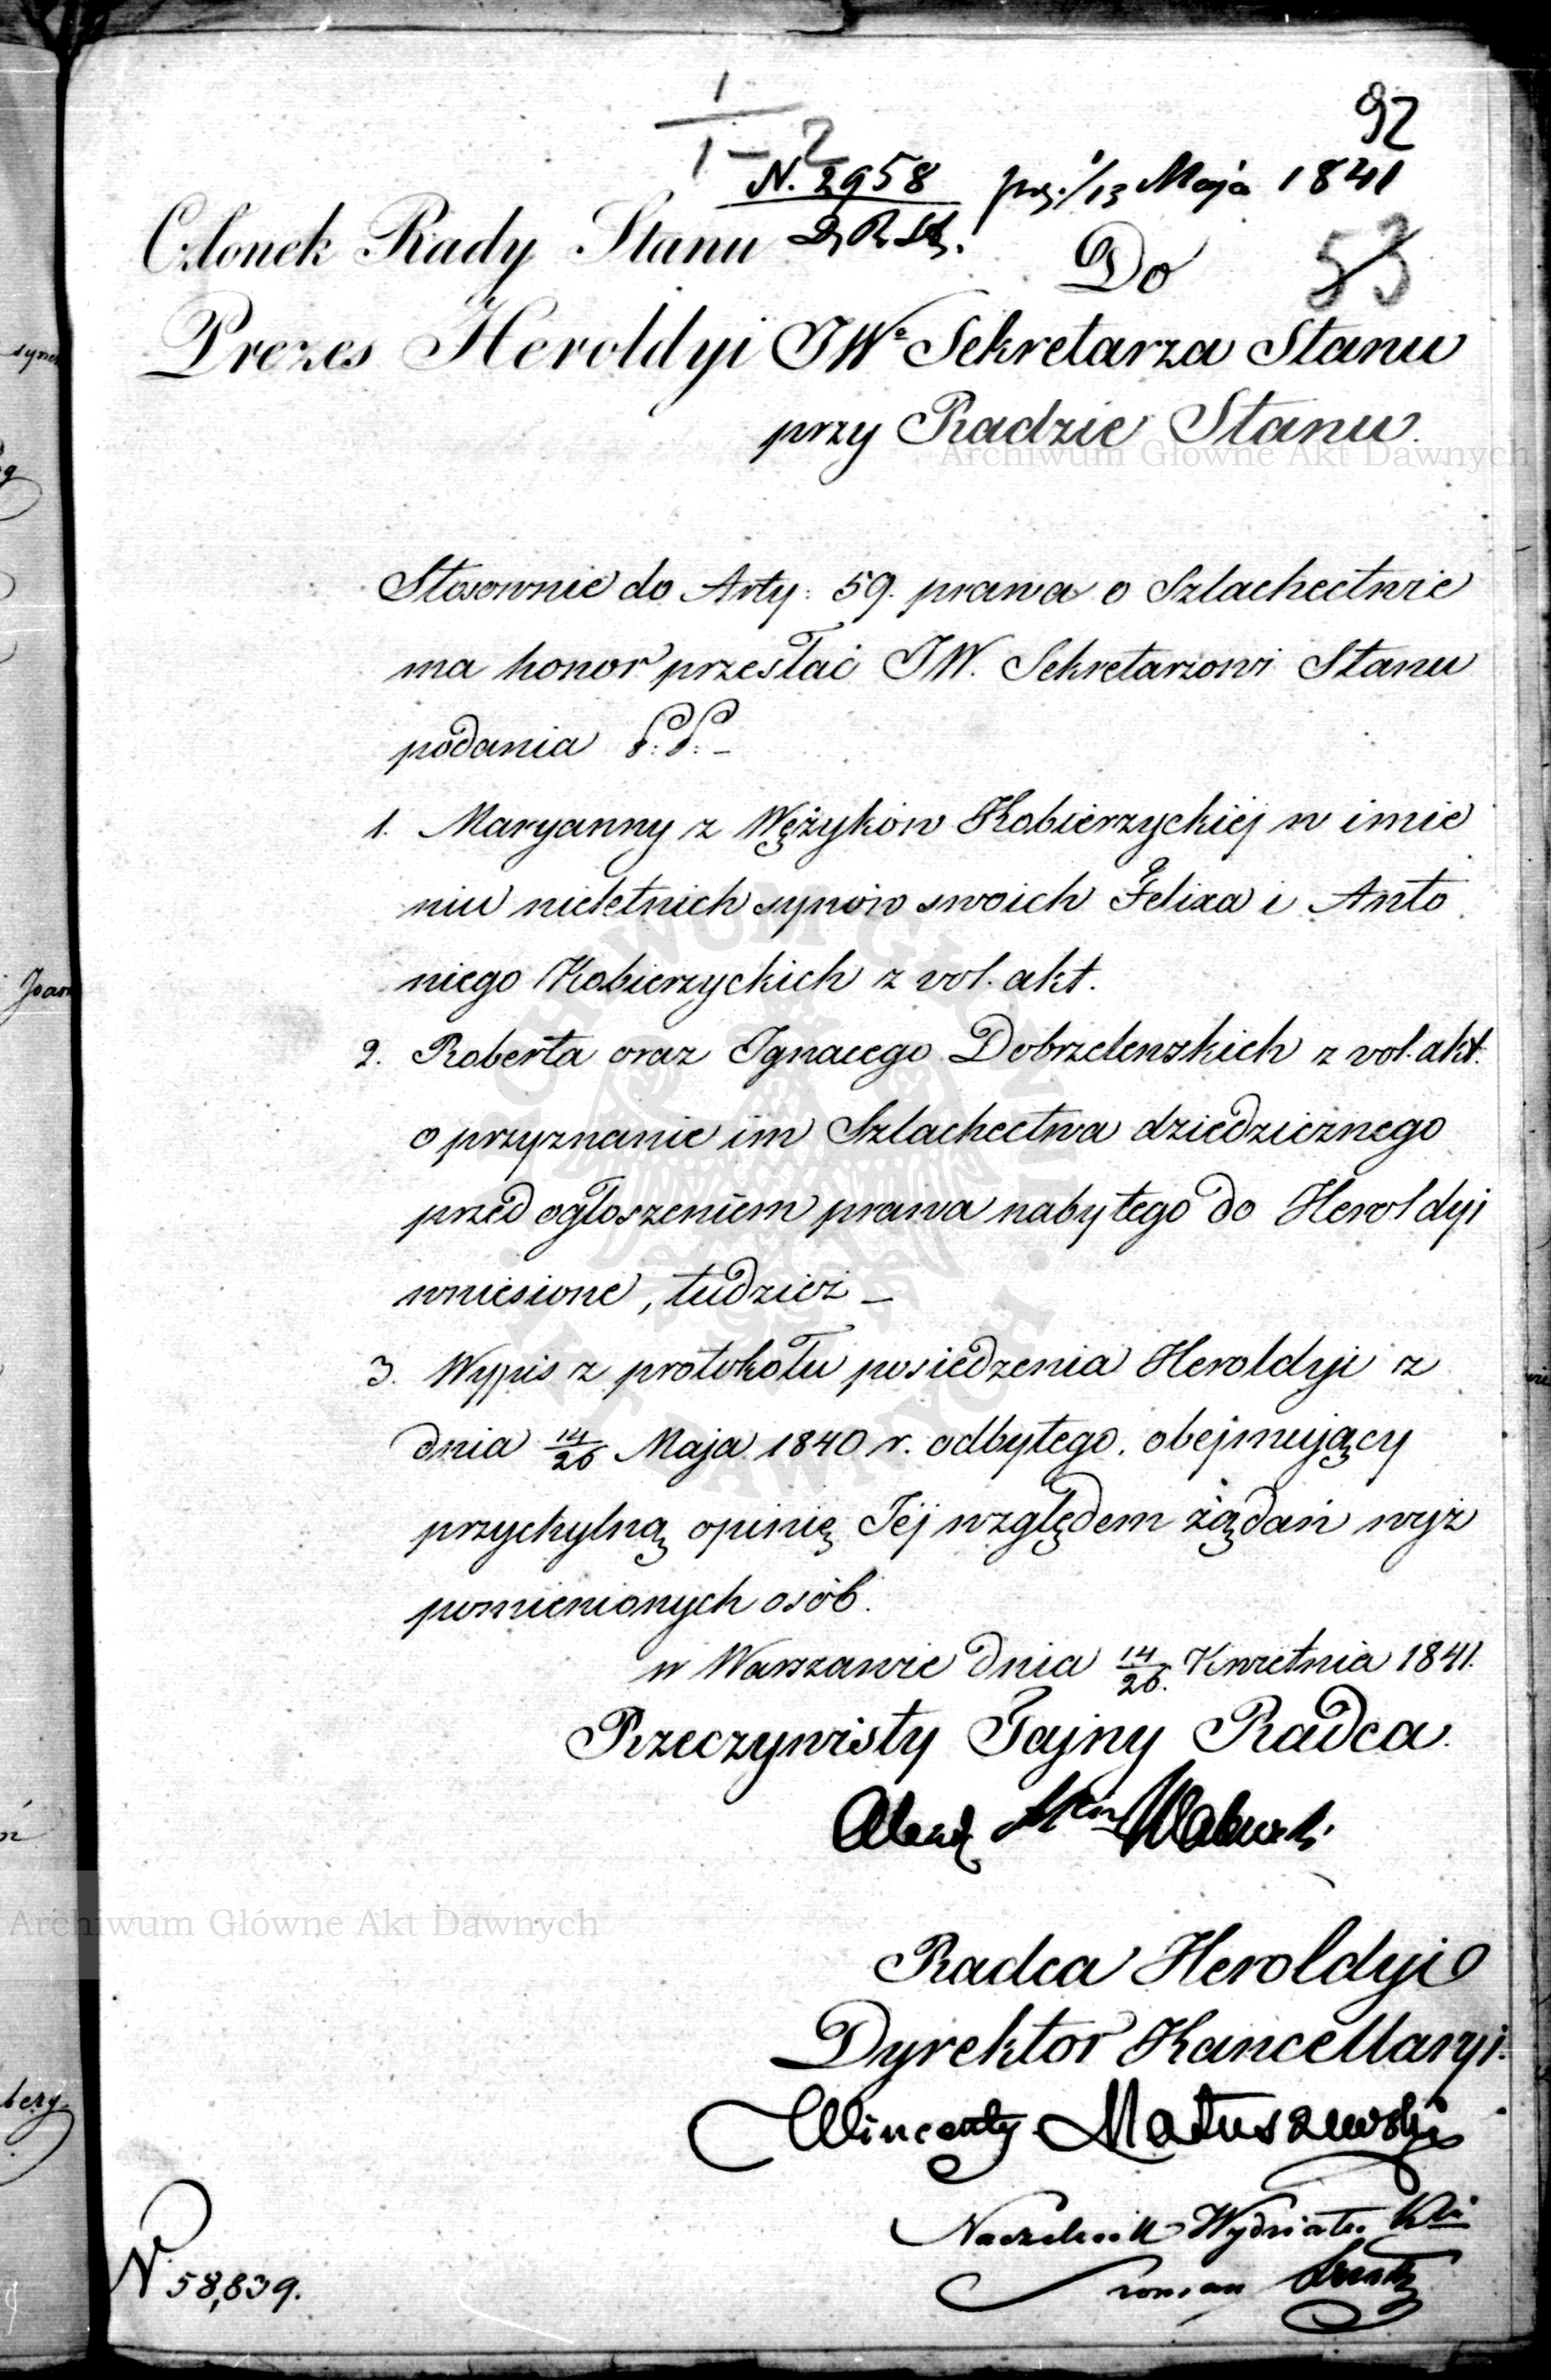 92
1
1 - 2
N. 2958
D. R. St.
prz. 1/13 Maja 1841
53
Członek Rady Stanu
Prezes Heroldyi
Do
JWo Sekretarza Stanu
przy Radzie Stanu.
Archiwum Główne Akt Dawnych
Stosownie do Arty: 59. prawa o Szlachectwie
ma honor przesłać JW. Sekretarzowi Stanu
podania P.P. –
1. Maryanny z Wężyków Kobierzyckiéj w imie
niu nieletnich synów swoich Felixa i Anto
niego Kobierzyckich z vol. akt.
2. Roberta oraz Ignacego Dobrzelenskich z vol. akt.
o przyznanie im Szlachectwa dziedzicznego
przed ogłoszeniem prawa nabytego do Heroldyi
wniesione, tudzież –
3. Wypis z protokołu posiedzenia Heroldyi z
dnia 14/26 Maja 1840 r. odbytego, obejmujący
przychylną opinię Jéj względem żądań wyż
pomienionych osób.
w Warszawie dnia 14/26. Kwietnia 1841.
Rzeczywisty Tajny Radca.
Archiwum Główne Akt Dawnych
Radca Heroldyi
Dyrektor Kancellaryi.
Wincenty Matuszewski
Naczelnik Wydziału
N. 58,839.
ARCHIWUM GŁÓWNE AKT DAWNYCH